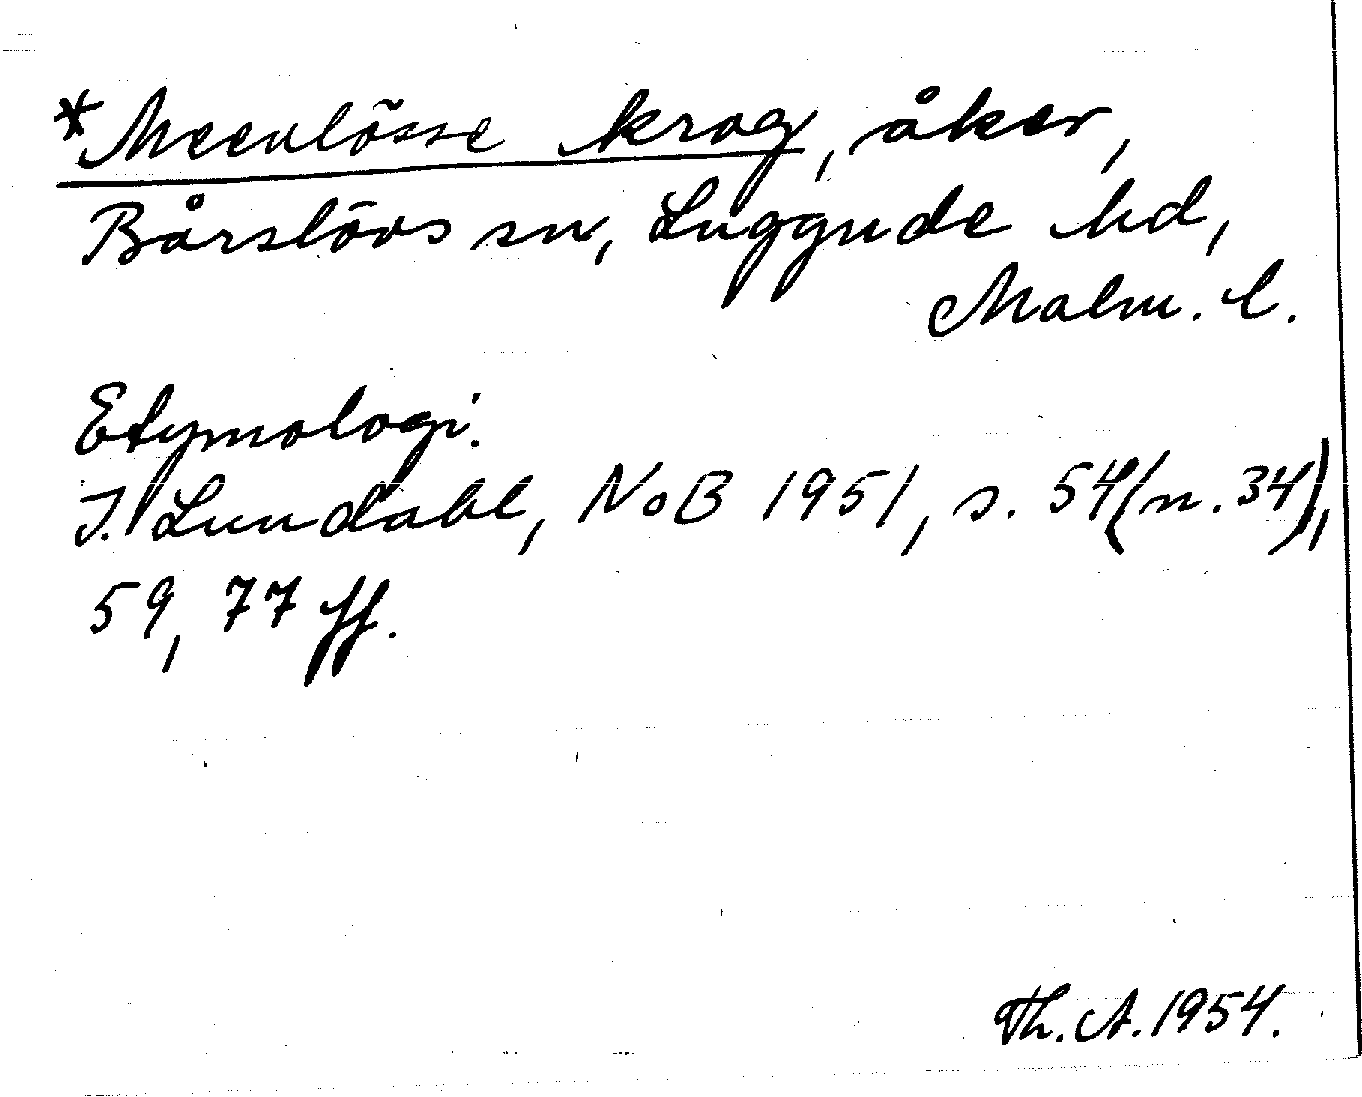 *Meenlösse krog, åker,
Bårslövs sn, Luggude hd,
Malm. l.
Etymologi.
I. Lundahl, NoB 1951, s. 54 (n. 34),
59, 77 ff.
Th. A. 1954.